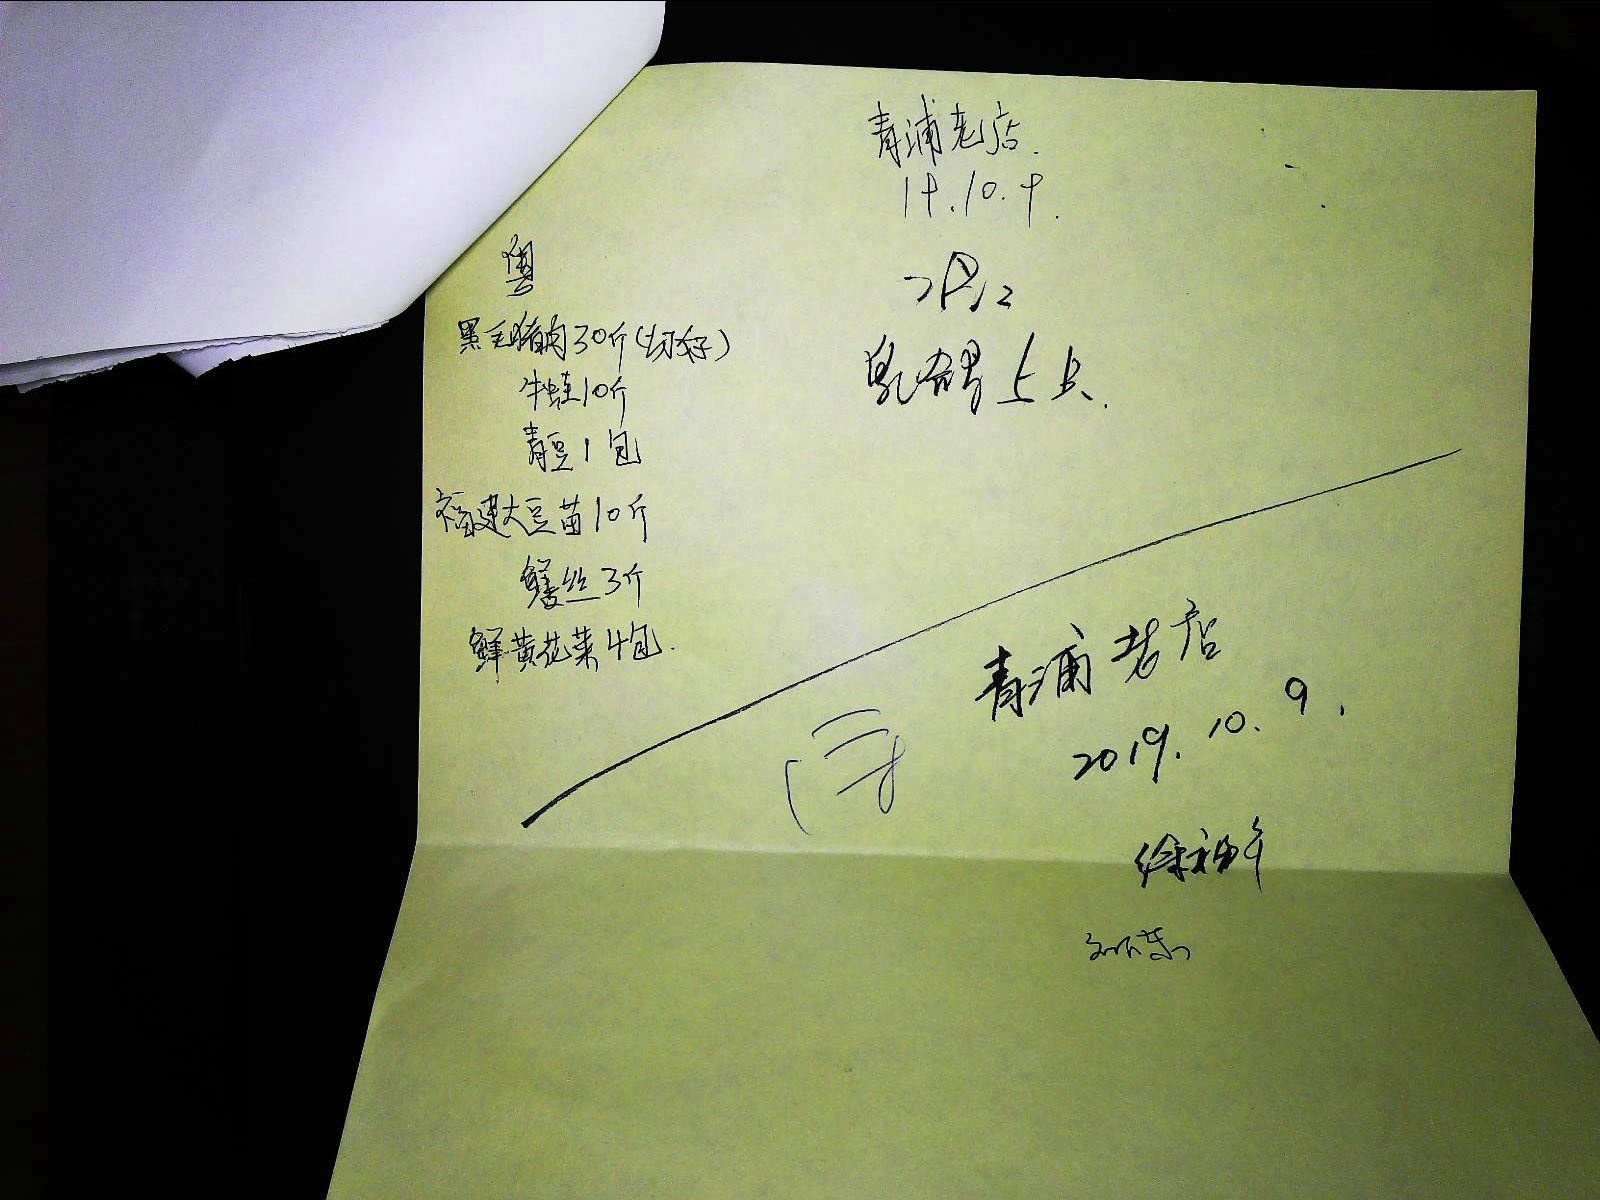 青浦老店.
19.10.9.
粤
黑毛猪肉30斤(切好)
牛蛙10斤
青豆1包
福建大豆苗10斤
鳝丝3斤
鲜黄花菜4包.
乳鸽
青浦老店
2019.10.9.